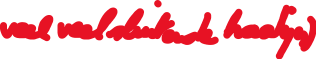 veel veel sluitende haakjes)